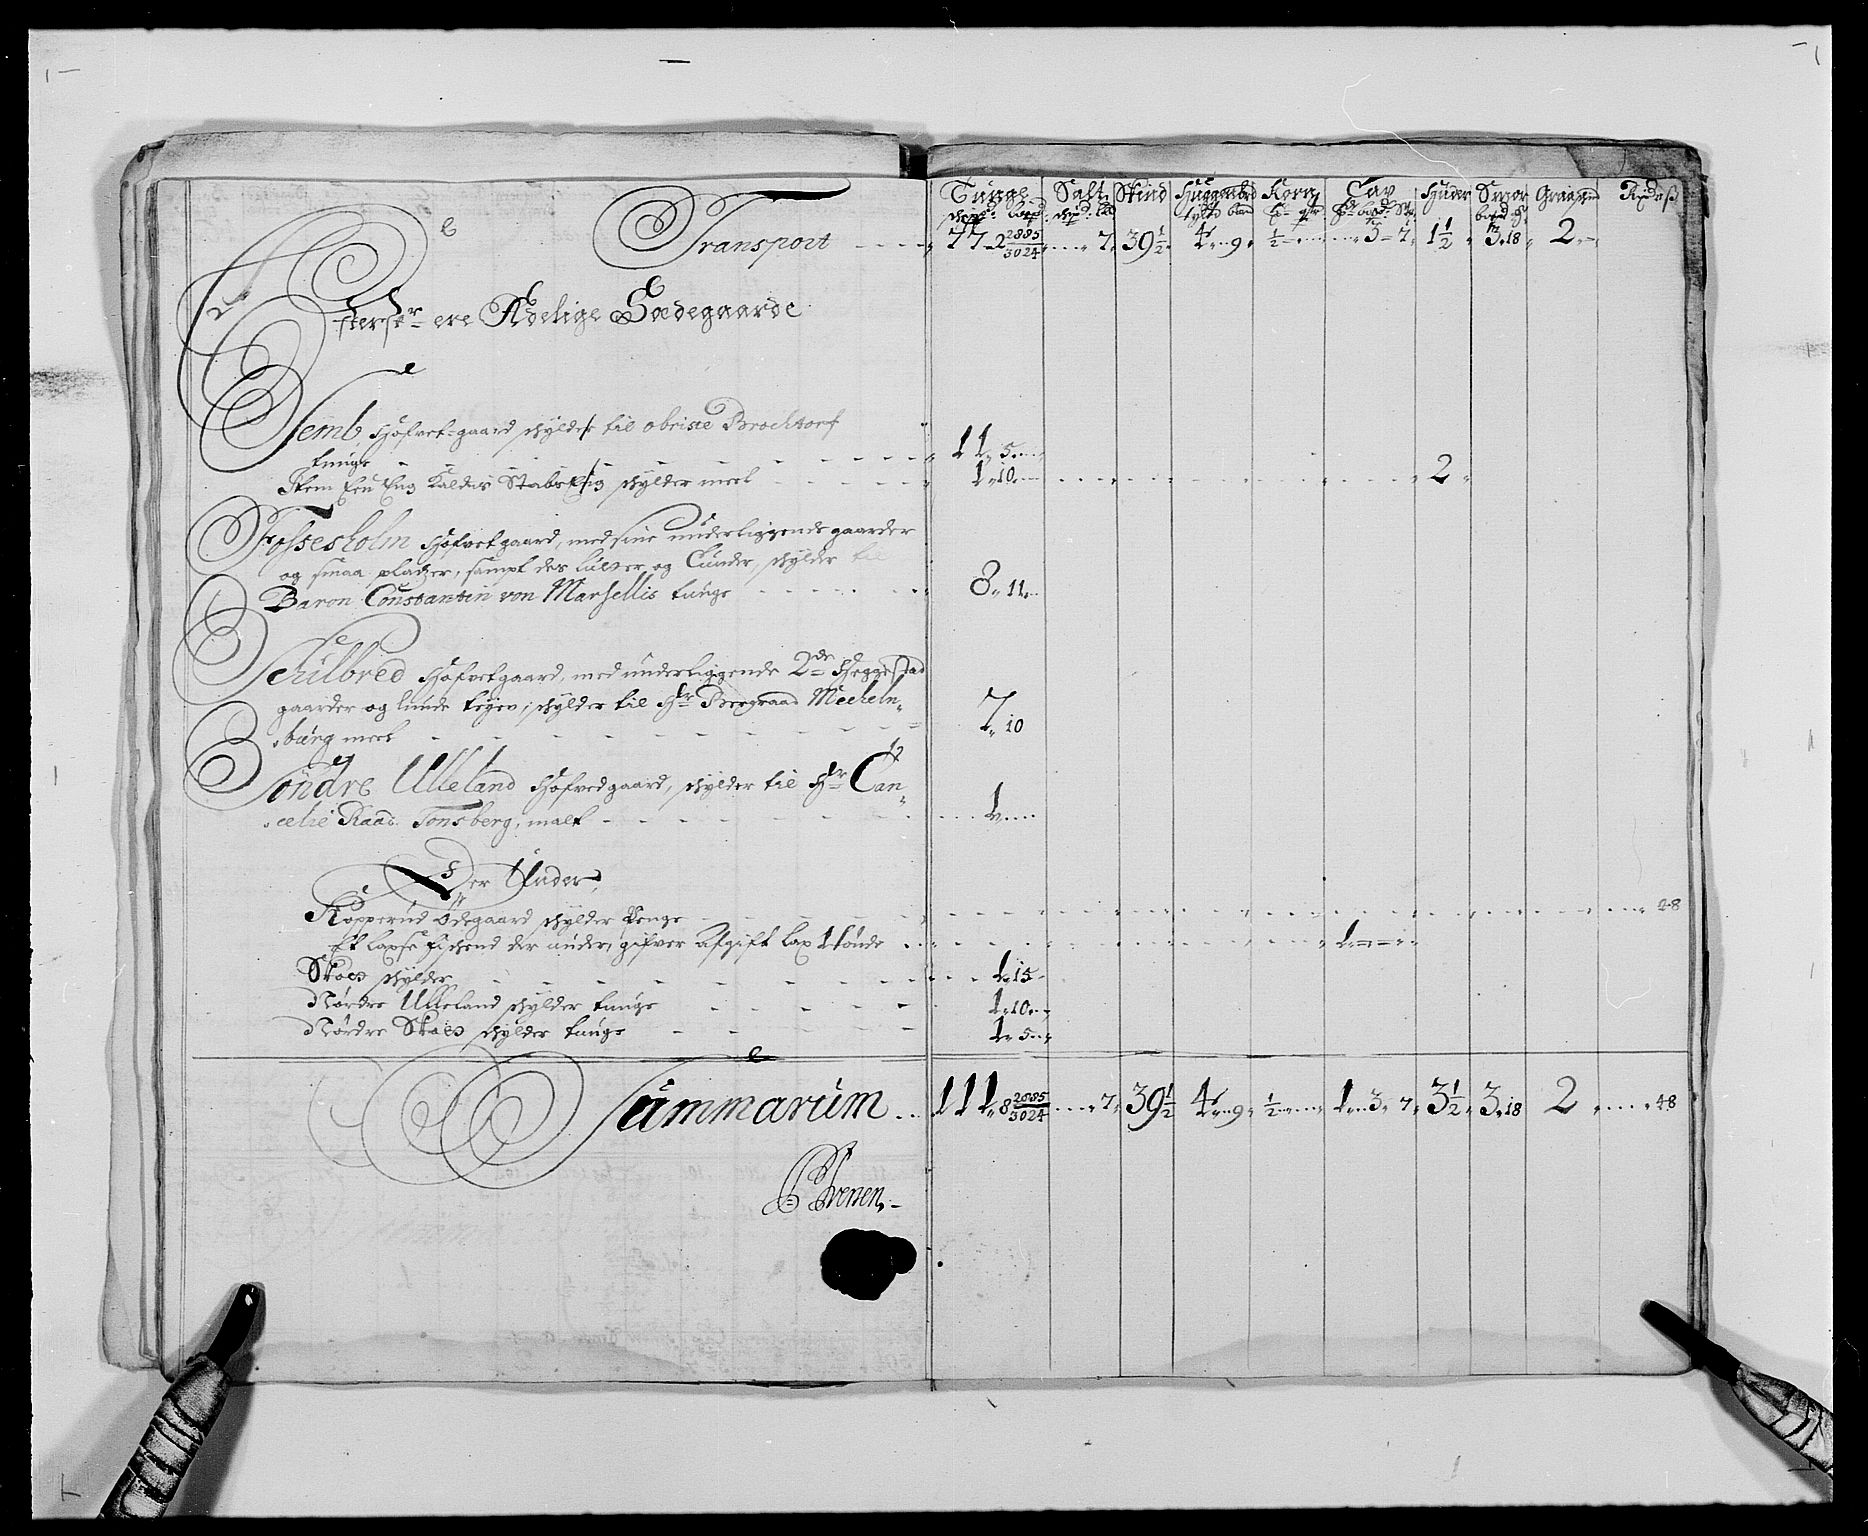 Tunge Salt Skind Huggenbrd Korn Lax Huder Smør Graaskind Rixd ß
Transport 77 2 2885/3024 7 39 1/2 4 9 1/2 3 7 1 1/2 3 18 2
Effterskr ere Adelige Sædegaarde
Semb, Hofvet-gaard skylder til obriste Brochtorf
tunge 11 5
Item Een Eng Kaldes Stabs Eng skylder meel 1 10 2
Fossesholm Hofvetgaard, med sine underliggende gaarder
og smaa pladtzer, sampt des luter og Lunder, skylder til
Baron Constantin von Marsellis tunge 8 11
Schilbred Hofvetgaard, med underliggende 2de Heggestad
gaarder og lunde teyen, skylder til Hr Bergraad Mecheln-
burg meel 7 10
Söndre Ulleland Hofvedgaard, skylder til Hr Can-
celie Raad Tonsberg, malt 1
Der Under
Kopperud Ödegaard skylder Penge 48
Et laxse fischend der under, gifver Afgift lax 1 tönde 1
Skoes skylder 1 15
Nördre Ulleland skylder tunge 1 10
Nördre Skoes skylder tunge 1 5
Summarum 111 8 2885/3024 7 39 1/2 4 9 1/2 1 3 7 3 1/2 3 18 2 48
Iversen